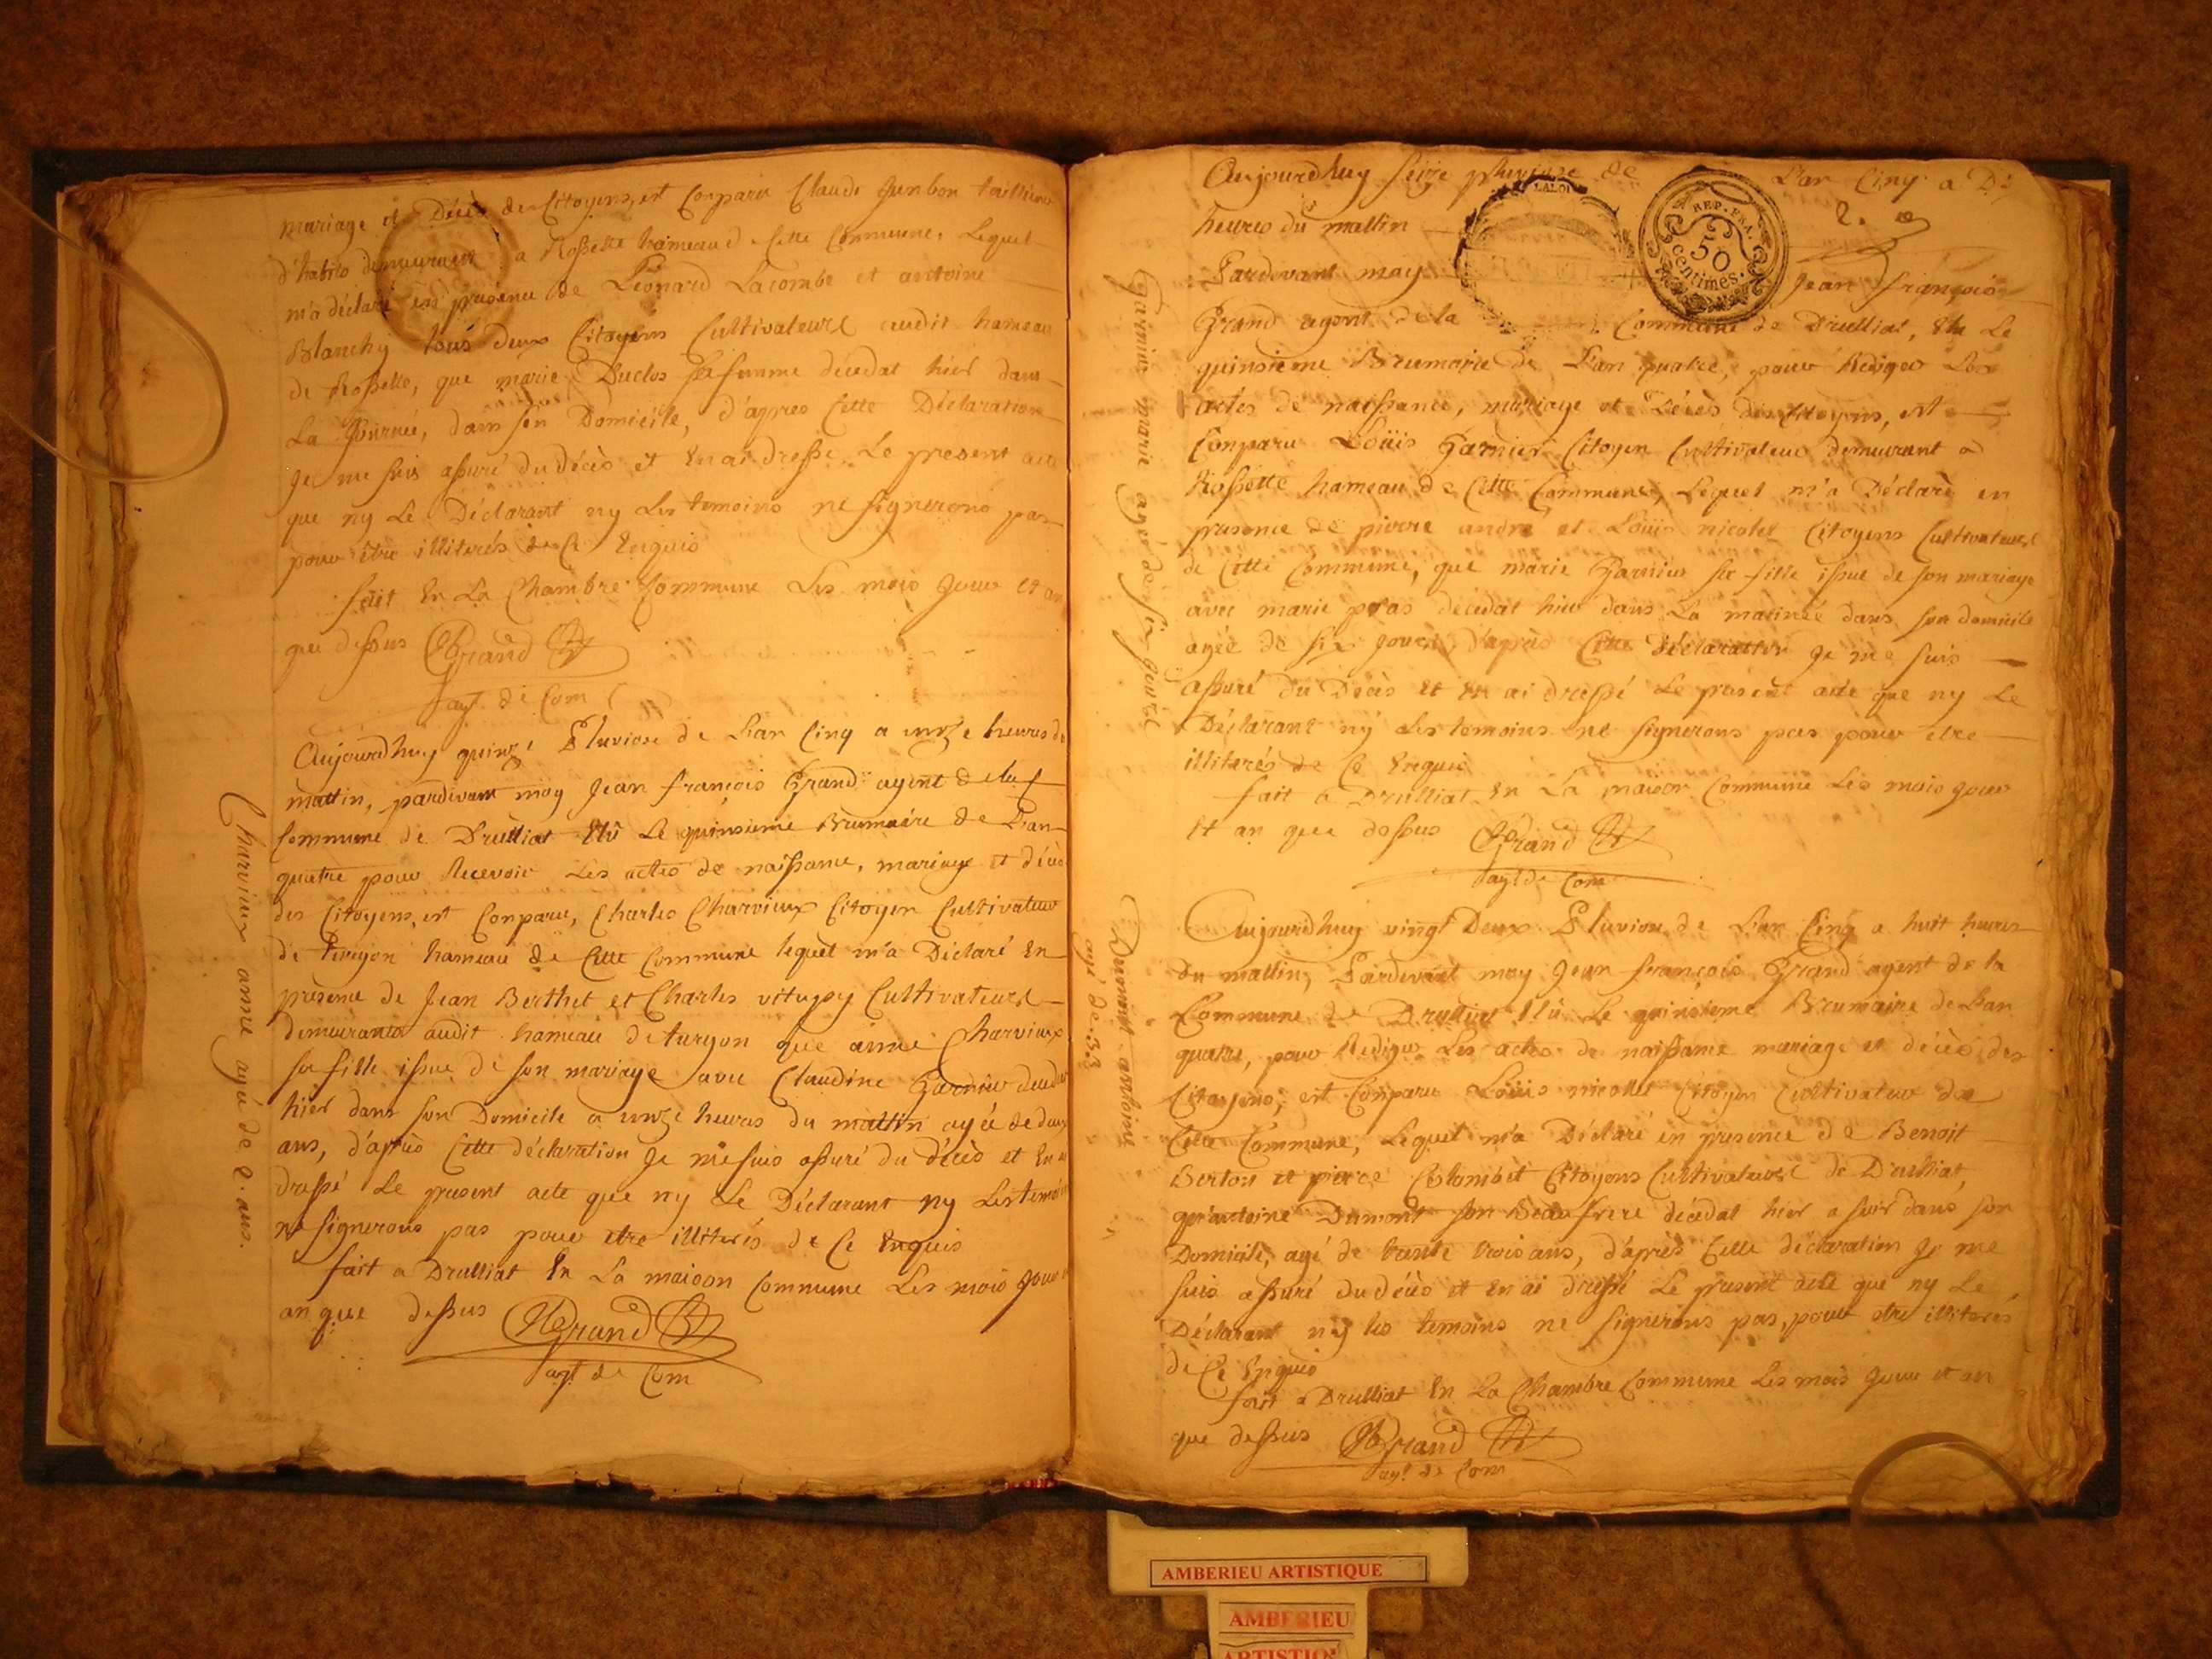 mariage et Décès des Citoyens, est Conparu Claude Jambon taillieur
d'habits demeurant a Rossette hameau de cette Commune, Lequel
m'a déclaré en presence de Léonard Lacombe et antoine
Blanchy tous deux Citoyens Cultivateurs audit hameau
de Rossette, que marie Duclos sa femme décédat hier dans
La Journée, dans son Domicile, d'appres Cette Déclaration
Je me suis assuré du décès et En ai dressé Le present acte
que ny Le Déclarant ny Les temoins ne signerons pas
pour être illiterés de Ce Enquis
fait En La Chambre Commune Les mois Jour et an
que dessus Grand
agt. de Com
Charvieux anne agée de 2. ans.
Aujourdhuy quinze Pluviose de L'an Cinq a unze heures du
mattin, pardevant moy Jean françois Grand agent de la
Commune de Druilliat Elû Le quinsieme Brumaire de L'an
quatre pour Recevoir Les actes de naissance, mariage et décès
des Citoyens, est Conparu, Charles Charvieux Citoyen Cultivateur
de turgon hameau de Cette Commune lequel m'a Déclaré En
presence de Jean Berthet et Charles vitupy Cultivateurs
demeurants audit hameau de turgon que anne Charvieux
sa fille issue de son mariage avec Claudine Garnier decedat
hier dans son Domicile a unze heures du mattin agée de deux
ans, d'appres Cette déclaration Je me suis assuré du décès et En ai
dressé Le present acte que ny Le Déclarant ny Les temoins
ne signerons pas pour etre illiterés de Ce Enquis
fait a Drulliat En La maison Commune Les mois Jour et
an que dessus Grand
agt. de Com
Aujourdhuy seize pluviose de L'an Cinq a Dix
heures du mattin
LA LOI
REP. FRA.
50
centimes.
2.
Pardevant moy Jean françois
Grand agent de la Commune de Drulliat, Elu Le
quinsieme Brumaire de L'an quatre, pour Rediger Les
actes de naissance, mariage et Décès des Citoyens, est
Conparu Loüis Garnier Citoyen Cultivateur demeurant a
Rossette hameau de Cette Commune, Lequel m'a Déclaré en
presence de pierre andré et Loüis nicolet Citoyens Cultivateurs
de Cette Commune, que marie Garnier sa fille issue de son mariage
avec marie pras décédat hier dans La matinée dans son domicile
agée de six jours, d'appres Cette déclaration Je me suis
assuré du Décès et En ai dressé Le present acte que ny Le
Déclarant ny Les temoins ne signerons pas pour etre
illiterés de Ce Enquis
fait a Drulliat En La maison Commune Les mois jour
Et an que dessus Grand
agt. de Com
Garnier marie agée de six jours
Aujourdhuy vingt Deux Pluviose de L'an Cinq a huit heures
du mattin, Pardevant moy Jean françois Grand agent de la
Commune de Drulliat Elû Le quinsieme Brumaire de L'an
quatre, pour Rediger Les actes de naissance mariage et décès des
Citoyens, est Conparu Loüis nicollet Citoyen Cultivateur de
Cette Commune, Lequel m'a Déclaré en presence de Benoit
Berton et pierce Colombet Citoyens Cultivateurs de Drulliat,
qu'antoine Dumont son Beaufrere décédat hier a soir dans son
Domicile, agé de trente trois ans, d'appres Cette déclaration Je me
suis assuré du décès et En ai dressé Le present acte que ny Le
Déclarant ny les temoins ne signerons pas, pour etre illiterés
de Ce Enquis
fait a Drulliat En La Chambre Commune Les mois Jour et an
que dessus Grand
agt. de Com
Dumont antoine
agé de 33
AMBERIEU ARTISTIQUE
AMBERIEU
ARTISTIQUE